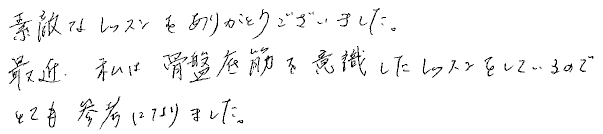 素敵なレッスンをありがとうございました。
最近、私は骨盤底筋を意識したレッスンをしているので
とても参考になりました。